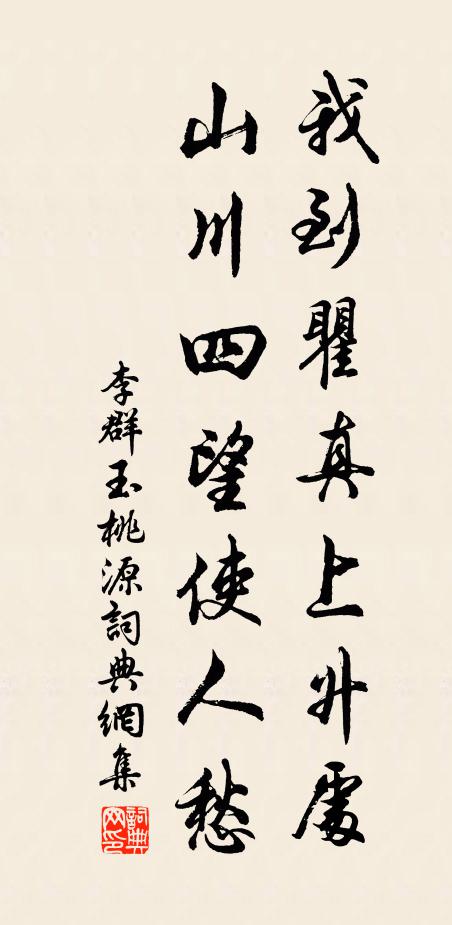 我到瞿真上升處
山川四望使人愁
李群玉桃源詞典網集
詞典網印